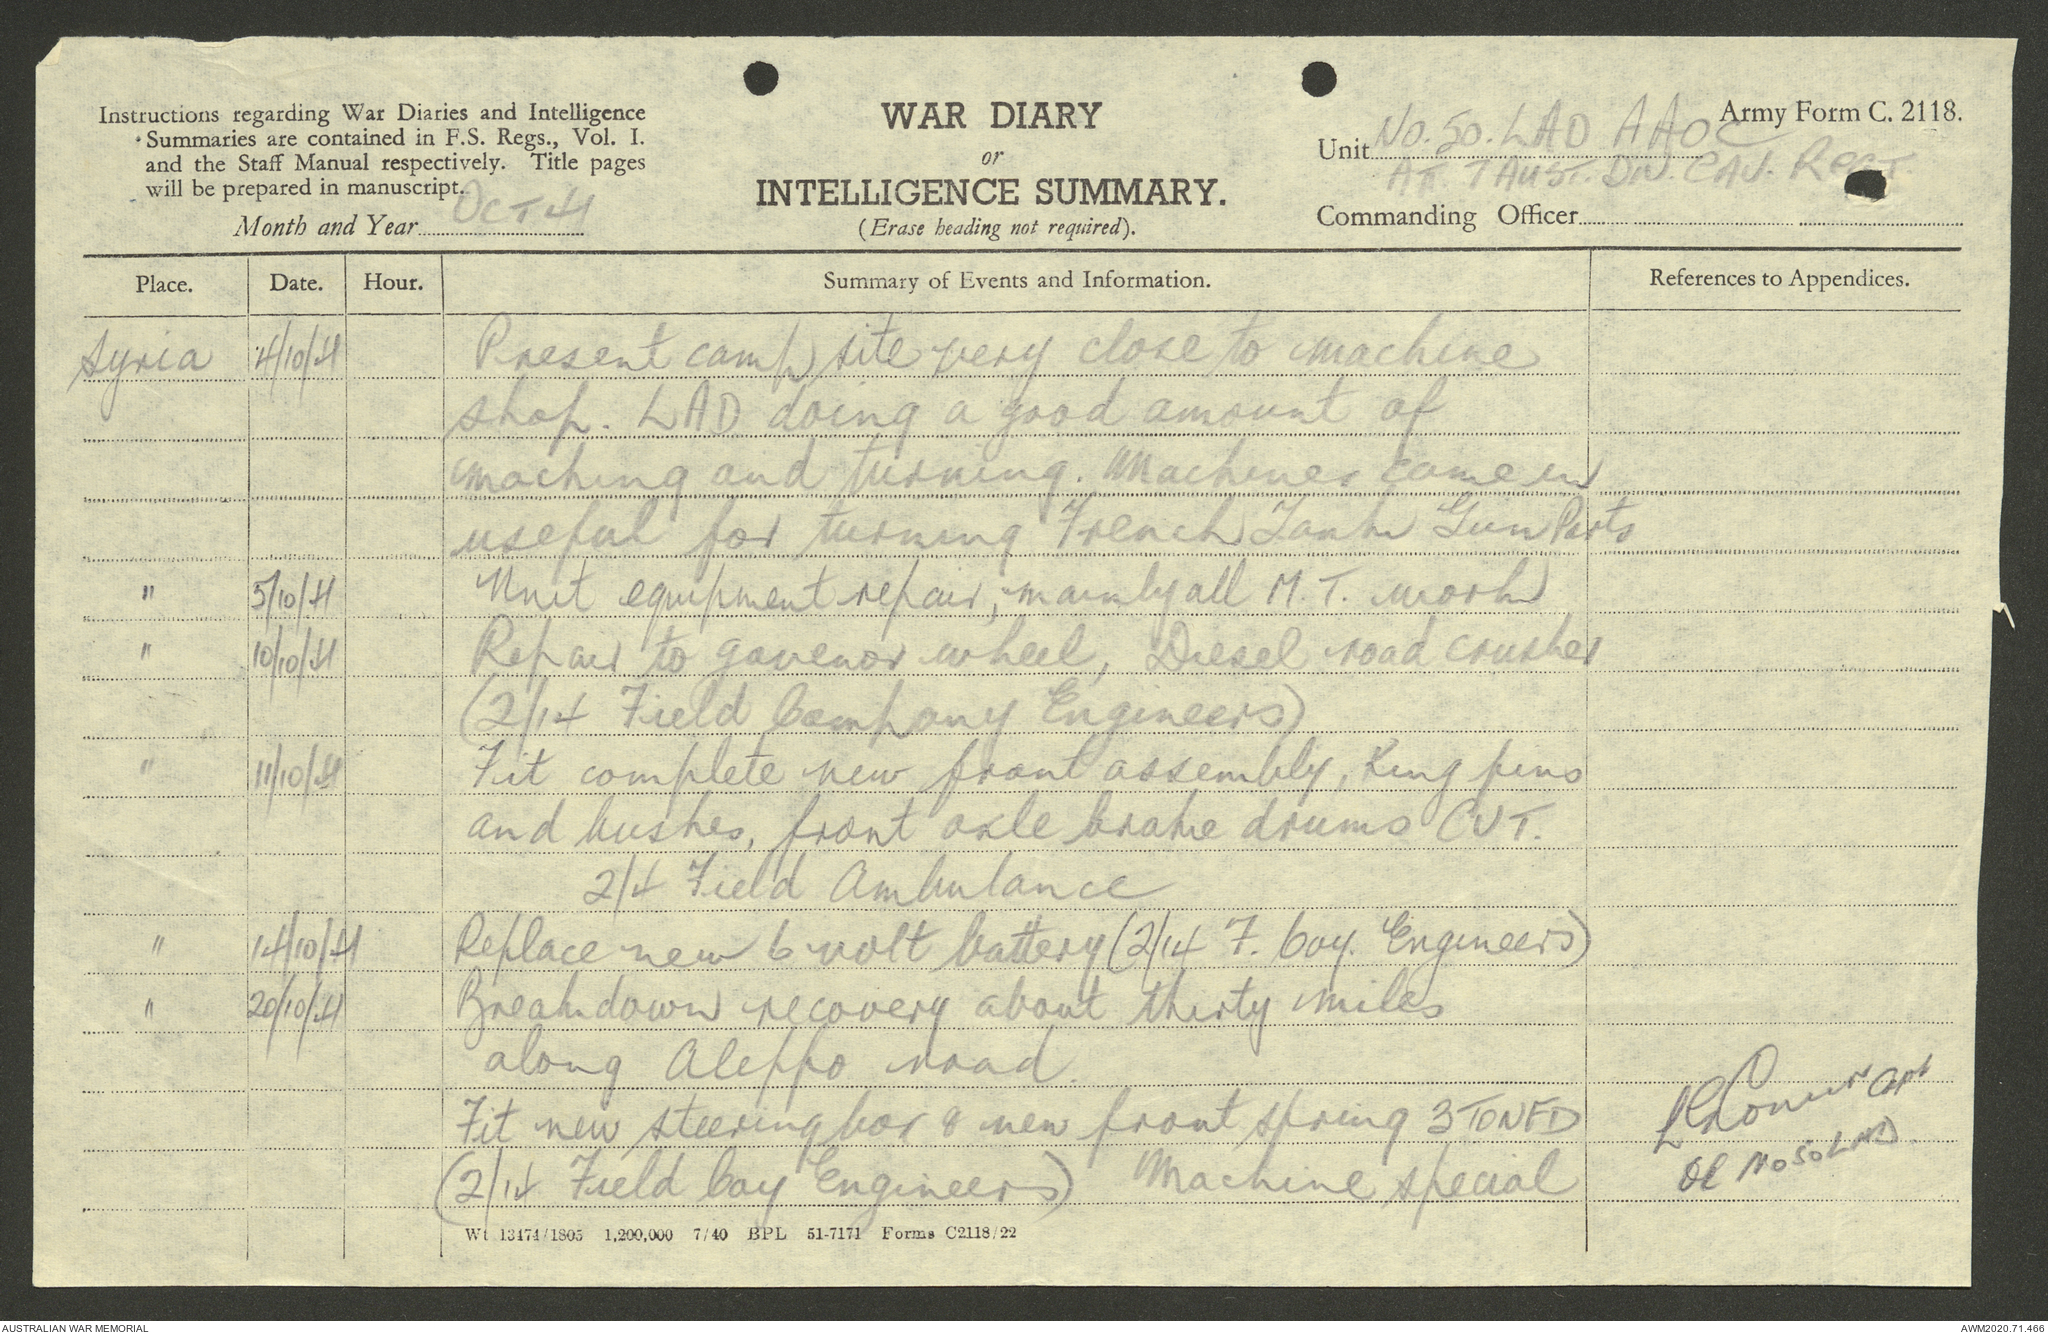 Instructions regarding War Diaries and Intelligence
Summaries are contained in F.S. Regs., Vol. I.
and the Staff Manual respectively. Title pages
will be prepared in manuscript.
Month and Year Oct 41
WAR DIARY
or
INTELLIGENCE SUMMARY.
(Erase heading not required).
Army Form C. 2118.
Unit No. 50. LAD AAOC
AT. 7 AUST. DIV. CAV. REGT.
Commanding Officer
Place. Date. Hour. Summary of Events and Information. References to Appendices.
Syria 4/10/41 Present camp site very close to machine
shop. LAD doing a good amount of
maching and turning. Machines came in
useful for turning French Tank Gun Parts
" 5/10/41 Unit equipment repair, mainly all M.T. work
" 10/10/41 Repair to govenor wheel, Diesel road crusher
(2/14 Field Company Engineers)
" 11/10/41 Fit complete new front assembly, King pins
and bushes, front axle brake drums CVT.
2/4 Field Ambulance
" 14/10/41 Replace new 6 volt battery (2/14 F. Coy. Engineers)
" 20/10/41 Breakdown recovery about thirty miles
along Aleppo road.
Fit new steering box & new front spring 3 TON FD
(2/14 Field Coy Engineers) Machine special
Capt
OC No 50 LAD.
Wt 13474/1805 1,200,000 7/40 BPL 51-7171 Forms C2118/22
AUSTRALIAN WAR MEMORIAL
AWM2020.71.466